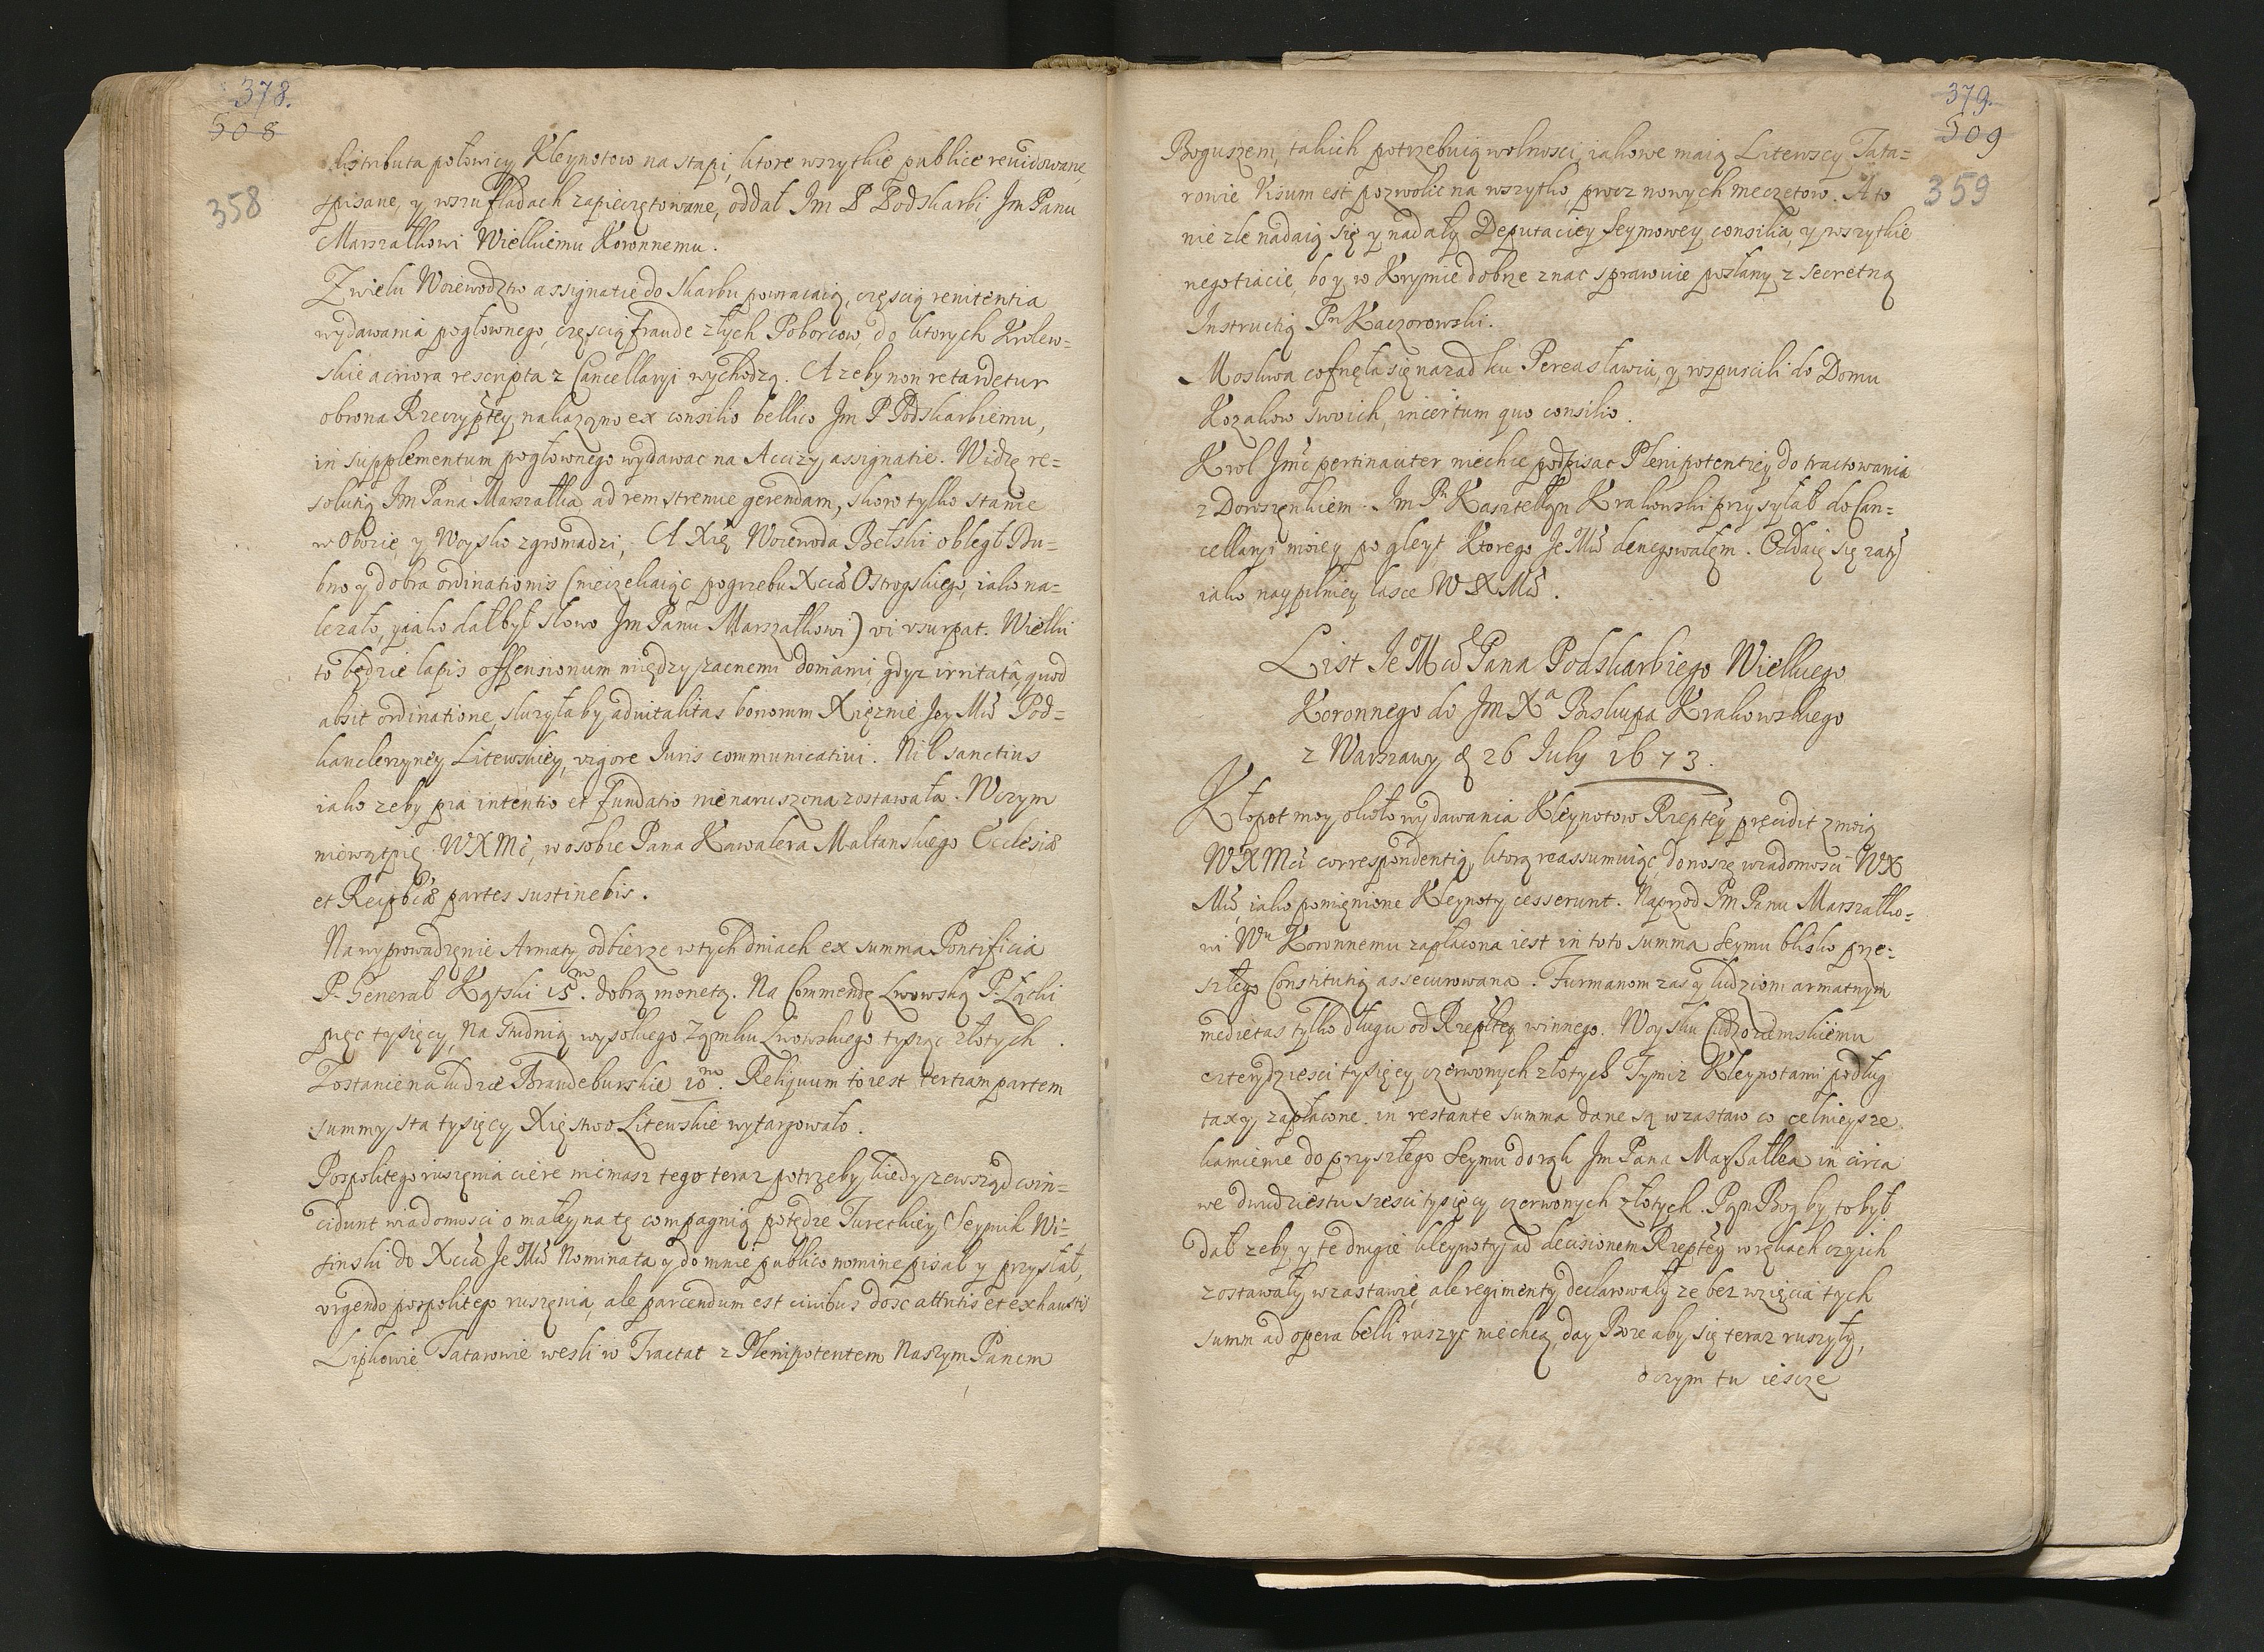 378.
508
358
distributa połowicy Kleynotow na stąpi, ktore wszytkie publice reuidowane,
spisane, y w szufladach zapieczętowane, oddał Im P Podskarbi Im Panu
Marszałkowi Wielkiemu Koronnemu.
Z wielu Woiewodztw assignatie do skarbu powracaią, częscią renitentia
wydawania pogłownego, częscią fraude złych Poborcow, do ktorych Krolew=
skie acriora rescripta z Cancellaryi wychodzą. A zeby non retardetur
obrona Rzeczyptey nakazano ex consilio bellico Im P Podskarbiemu,
in supplementum pogłownego wydawac na Accizy assignatie. Widzę re=
solutią Im Pana Marszałka ad rem strenue gerendam, skoro tylko stanie
w Obozie, y Woysko zgromadzi, A Xżę Woiewoda Bełski obległ Du=
bno y dobra ordinationis (nieczekaiąc pogrzebu Xcia Ostrogskiego, iako na=
lezało, y iako dał był słowo Im Panu Marszałkowi) vi vsurpat. Wielki
to będzie lapis offensionum między zacnemi domami, gdyz irritatâ, quod
absit ordinatione, słuzyłaby aduitalitas bonorum Xięznie Jey Mci Pod=
kanclerzyney Litewskiey, vigore Iuris communicatiui. Nil sanctius
iako zeby pia intentio et fundatio nienaruszona zostawała. W czym
niewątpię WXMc, w osobie Pana Kawalera Maltanskiego Ecclesiæ
et Reipbcæ partes sustinebis.
Na wyprowadzęnie Armaty odbierze w tych dniach ex summa Pontificia
P. Generał Kątski 15m. dobrą monetą. Na Commendę Lwowską P. Łącki
pięc tysięcy, Na Studnią wysokiego Zamku Lwowskiego tysiąc złotych.
Zostanie na ludzie Brandeburskie 10m. Reliquum to iest tertiam partem
summy sta tysięcy Xięstwo Litewskie wytargowało.
Pospolitego ruszęnia ciere niemasz tego teraz potrzeby, kiedy zewsząd coin=
cidunt wiadomosci o małey na tę compagnią potędze Tureckiey, Seymik Wi=
sinski do Xcia Je Mci Nominata y do mnie publico nomine pisał y przysłał,
vrgendo pospolitego ruszęnia, ale parcendum est ciuibus dosc attritis et exhaustis
Lipkowie Tatarowie weszli w Tractat z Plenipotentem Naszym Panem
379.
509
359
Boguszem, takich potrzebuią wolnosci, iakowe maią Litewscy Tata=
rowie Visum est pozwolic na wszytko, procz nowych meczetow. A to
nie zle nadaią się y nadały Deputaciey Seymowey consilia, y wszytkie
negotiacie, bo y w Krymie dobrze znac sprawuie posłany z secretną
Instructią Pn Kaczorowski.
Moskwa cofnęła się nazad ku Pereasławiu, y rospuscili do Domu
Kozakow swoich, incertum quo consilio.
Krol Jmć pertinaciter niechce podpisac Plenipotentiey do tractowania
z Doroszęnkiem. Im Pn Kasztellan Krakowski przysyłał do Can=
cellaryi moiey po gleyt, Ktorego Je Mci denegowałem. Oddaię się zatym
iako naypilniey łasce W X Mci.
List Je Mci Pana Podskarbiego Wielkiego
Koronnego do Im Xa Biskupa Krakowskiego
z Warszawy d 26 July 1673.
Kłopot moy około wydawania Kleynotow Rzeptey pręcidit z moią
WXMcią correspondentią, ktorą reassumuiąc, donoszę wiadomosci WX
Mci, iako pomięnione Kleynoty cesserunt. Naprzod Im Panu Marszałko=
wi Wu Koronnemu zapłacona iest in toto summa Seymu blisko prze=
szłego Constitutią assecurowana. Furmanom zas y ludziom armatnym
medietas tylko długu od Rzeptey winnego. Woysku Cudzoziemskiemu
czterydziesci tysięcy czerwonych złotych Tymiz Kleynotami podług
taxy zapłacone. in restante summa dane są w zastaw co celnieysze
kamienie do przyszłego Seymu do rąk Im Pana Marszałka in circa
we dwudziestu szesci tysięcy czerwonych złotych. Pan Bog by to był
dał zeby y te drugie kleynoty ad decisionem Rzeptey w rękach czyich
zostawały w zastawie, ale regimenty declarowały ze bez wzięcia tych
summ ad opera belli ruszyc niechcą, day Boze aby się teraz ruszyły,
o czym tu iescze